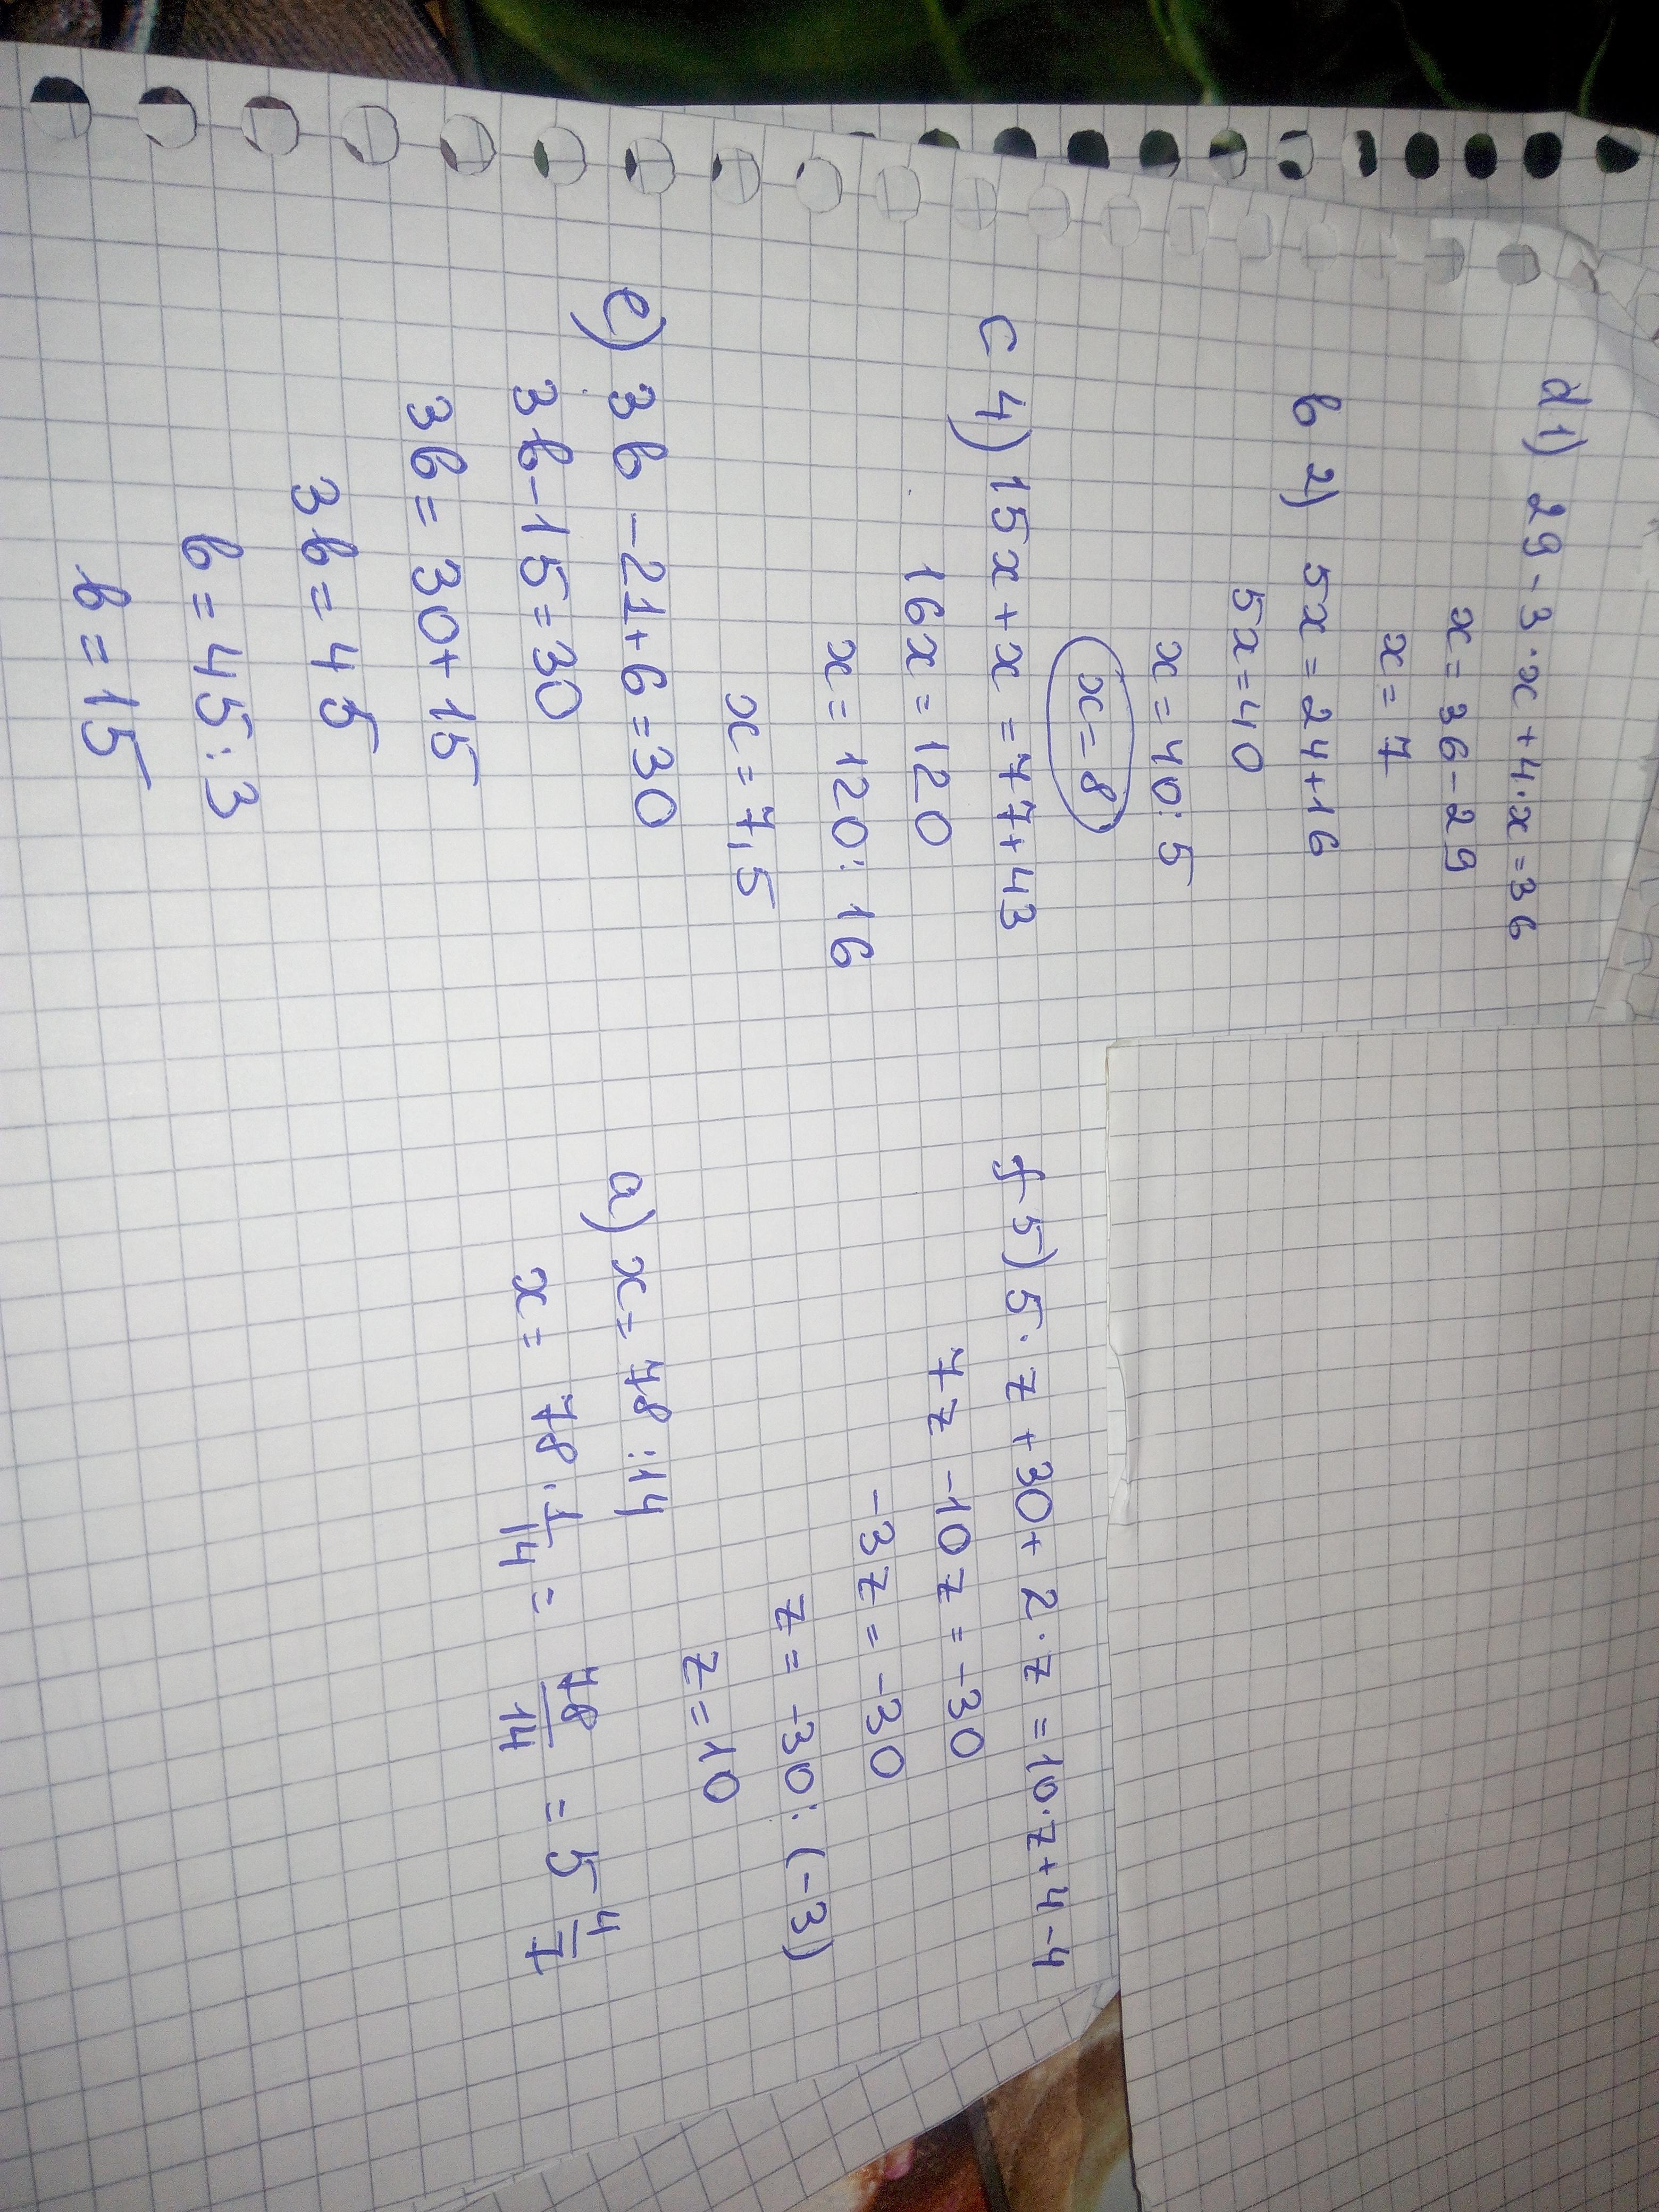 d 1) 29 - 3·x + 4·x = 36
x = 36 - 29
x = 7
b 2) 5x = 24 + 16
5x = 40
x = 40 : 5
x = 8
c 4) 15x + x = 77 + 43
16x = 120
x = 120 : 16
x = 7,5
e) 3b - 21 + 6 = 30
3b - 15 = 30
3b = 30 + 15
3b = 45
b = 45 : 3
b = 15
f 5) 5·z + 30 + 2·z = 10·z + 4 - 4
7z - 10z = -30
-3z = -30
z = -30 : (-3)
z = 10
a) x = 78 : 14
x = 78 · 1/14 = 78/14 = 5 4/7